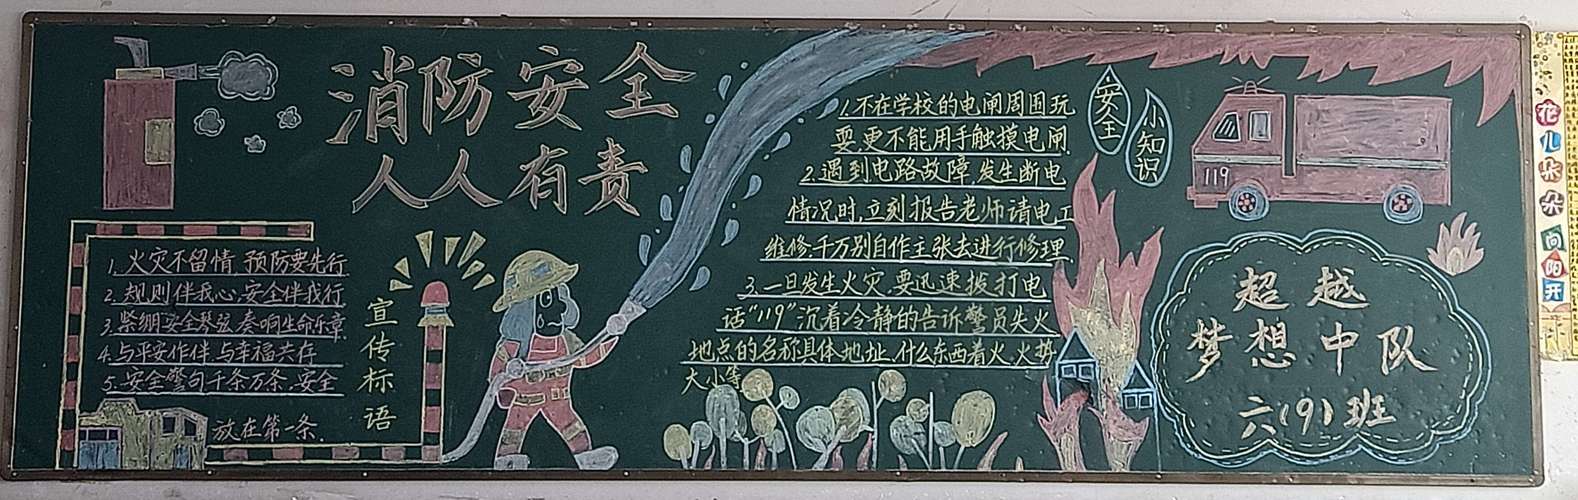 消防安全
人人有责
1.火灾不留情 预防要先行
2.规则伴我心,安全伴我行
3.紧绷安全琴弦,奏响生命乐章
4.与平安作伴,与幸福共存
5.安全警句千条万条,安全
放在第一条.
宣传标语
安全
小知识
1.不在学校的电闸周围玩
耍,更不能用手触摸电闸.
2.遇到电路故障,发生断电
情况时,立刻报告老师请电工
维修.千万别自作主张去进行修理.
3.一旦发生火灾,要迅速拨打电
话“119”沉着冷静的告诉警员失火
地点的名称具体地址,什么东西着火.火势
大小等
119
超越
梦想中队
六(9)班
花儿朵朵向阳开